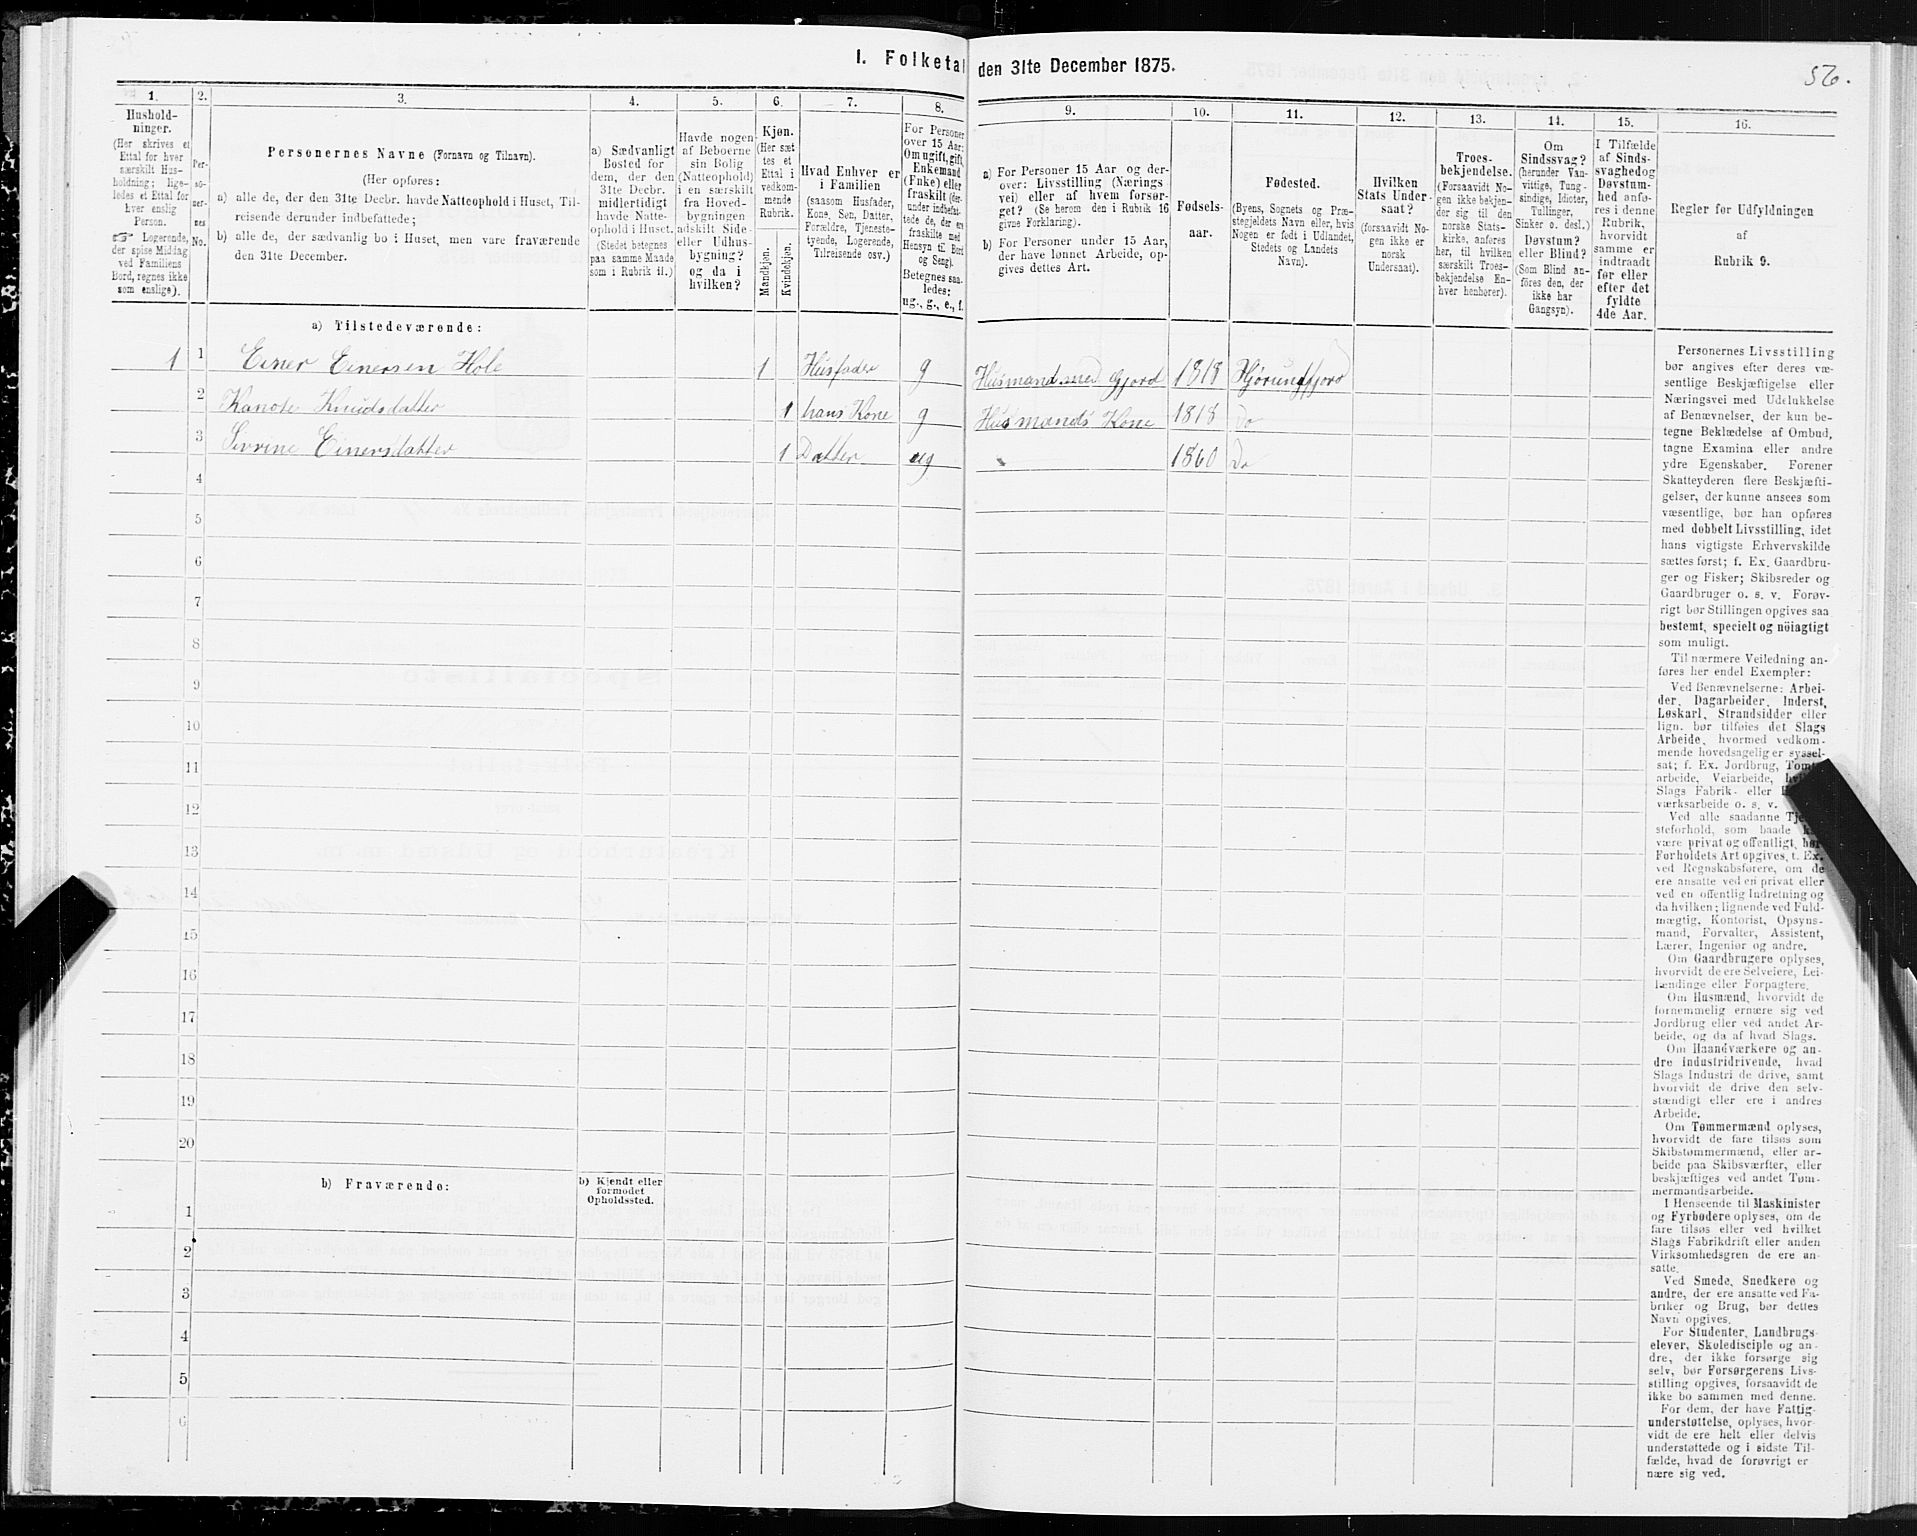 I. Folketal den 31te December 1875.
56.
1.
Husholdninger.
(Her skrives et
Ettal for hver
særskilt Husholdning; ligeledes et Ettal for
hver enslig
Person.
☞ Logerende,
der spise Middag
ved Familiens
Bord, regnes ikke
som enslige).
2.
Personernes
No.
3.
Personernes Navne (Fornavn og Tilnavn).
(Her opføres:
a) alle de, der den 31te Decbr. havde Natteophold i Huset, Tilreisende derunder indbefattede;
b) alle de, der sædvanlig bo i Huset, men vare fraværende
den 31te December.
4.
a) Sædvanligt
Bosted for
dem, der den
31te Decbr.
midlertidigt
havde Natteophold i Huset.
(Stedet betegnes
paa samme Maade
som i Rubrik 11.)
5.
Havde nogen
af Beboerne
sin Bolig
(Natteophold)
i en særskilt
fra Hovedbygningen
adskilt Side-
eller Udhusbygning?
og da i
hvilken?
6.
Kjøn.
(Her sættes et
Ettal i
vedkommende
Rubrik.
Mandkjøn.
Kvindekjøn.
7.
Hvad Enhver er
i Familien
(saasom Husfader,
Kone, Søn, Datter,
Forældre, Tjenestetyende, Logerende,
Tilreisende osv.)
8.
For Personer
over 15 Aar:
Om ugift, gift,
Enkemand
(Enke) eller
fraskilt (derunder indbefattede de, der ere
fraskilte med
Hensyn til Bord
og Seng).
Betegnes saaledes:
ug., g., e., f.
9.
a) For Personer 15 Aar og derover: Livsstilling (Næringsvei) eller af hvem forsørget? (Se herom den i Rubrik 16
givne Forklaring).
b) For Personer under 15 Aar,
der have lønnet Arbeide, opgives dettes Art.
10.
Fødselsaar.
11.
Fødested.
(Byens, Sognets og Præstegjeldets Navn eller, hvis
Nogen er født i Udlandet,
Stedets og Landets
Navn).
12.
Hvilken
Stats Undersaat?
(forsaavidt Nogen ikke er
norsk
Undersaat).
13.
Troesbekjendelse.
(Forsaavidt Nogen ikke bekjender sig til den
norske Statskirke, anføres
her, til hvilken
særskilt Troesbekjendelse Enhver henhører).
14.
Om
Sindssvag?
(herunder Vanvittige, Tungsindige, Idioter,
Tullinger,
Sinker o. desl.)
Døvstum?
eller Blind?
(Som Blind anføres den, der
ikke har
Gangsyn).
15.
I Tilfælde
af Sindssvaghed og
Døvstumhed anføres i denne
Rubrik,
hvorvidt
samme er
indtraadt
før eller
efter det
fyldte
4de Aar.
16.
Regler for Udfyldningen
af
Rubrik 9.
a) Tilstedeværende:
1 1 Einer Einersen Hole 1 Husfader g Husmand med Gjord 1818 Hjørundfjord
2 Kanote Knudsdatter 1 hans Kone g Husmands Kone 1818 Do
3 Sivrine Einersdatter 1 Datter ug 1860 Do
4
5
6
7
8
9
10
11
12
13
14
15
16
17
18
19
20
b) Fraværende:
b) Kjendt eller
formodet
Opholdssted.
1
2
3
4
5
6
Personernes Livsstilling
bør angives efter deres væsentlige Beskjæftigelse eller
Næringsvei med Udelukkelse
af Benævnelser, der kun betegne Beklædelse af Ombud,
tagne Examina eller andre
ydre Egenskaber. Forener
Skatteyderen flere Beskjæftigelser, der kunne ansees som
væsentlige, bør han opføres
med dobbelt Livsstilling, idet
hans vigtigste Erhvervskilde
sættes først; f. Ex. Gaardbruger og Fisker; Skibsreder og
Gaardbruger o. s. v. Forøvrigt bør Stillingen opgives saa
bestemt, specielt og nöiagtigt
som muligt.
Til nærmere Veiledning anføres her endel Exempler:
Ved Benævnelserne: Arbeider, Dagarbeider, Inderst,
Løskarl, Strandsidder eller
lign. bør tilføies det Slags
Arbeide, hvormed vedkommende hovedsagelig er sysselsat; f. Ex. Jordbrug, Tomtearbeide, Veiarbeide,
Slags Fabrik- eller
værksarbeide o. s. v.
Ved alle saadanne Tjenesteforhold, som baade
være privat og offentligt, bør
Forholdets Art opgives, t. Ex.
ved Regnskabsførere, om de
ere ansatte ved en privat eller
ved en offentlig Indretning og
da hvilken; lignende ved Fuldmægtig, Kontorist, Opsynsmand, Forvalter, Assistent,
Lærer, Ingeniør og andre.
Om Gaardbrugere oplyses,
hvorvidt de ere Selveiere, Leilændinge eller Forpagtere.
Om Husmænd, hvorvidt de
fornemmelig ernære sig ved
Jordbrug eller ved andet Arbeide, og da af hvad Slags.
Om Haandværkere og andre Industridrivende, hvad
Slags Industri de drive, samt
hvorvidt de drive den selvstændigt eller ere i andres
Arbeide.
Om Tømmermænd oplyses,
hvorvidt de fare tilsøs som
Skibstømmermænd, eller arbeide paa Skibsværfter, eller
beskjæftiges ved andet Tømmermandsarbeide.
I Henseende til Maskinister
og Fyrbødere oplyses, om de
fare tilsøs eller ved hvilket
Slags Fabrikdrift eller anden
Virksomhedsgren de ere ansatte.
Ved Smede, Snedkere og
andre, der ere ansatte ved Fabriker og Brug, bør dettes
Navn opgives.
For Studenter, Landbrugselever, Skoledisciple og andre, der ikke forsørge sig
selv, bør Forsørgerens Livsstilling opgives, forsaavidt de
ikke bo sammen med denne.
For dem, der have Fattigunderstøttelse, oplyses, hvorvidt de ere helt eller delvis
understøttede og i sidste Tilfælde, hvad de forøvrigt ernære sig ved.